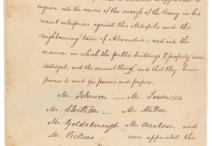 enquire into the causes of the success of the Enemy in his
recent enterprises against this Metropolis and the
neighbouring town of Alexandria, and into the
manner in which the public buildings & property were
destroyed, and the amount thereof, and that they have
power to send for persons and papers.
Mr. Johnson — Mr. Lowndes
Mr. Stockton — Mr. Miller
Mr. Goldsborough Mr. Barbour and
Mr. Pickens were appointed the